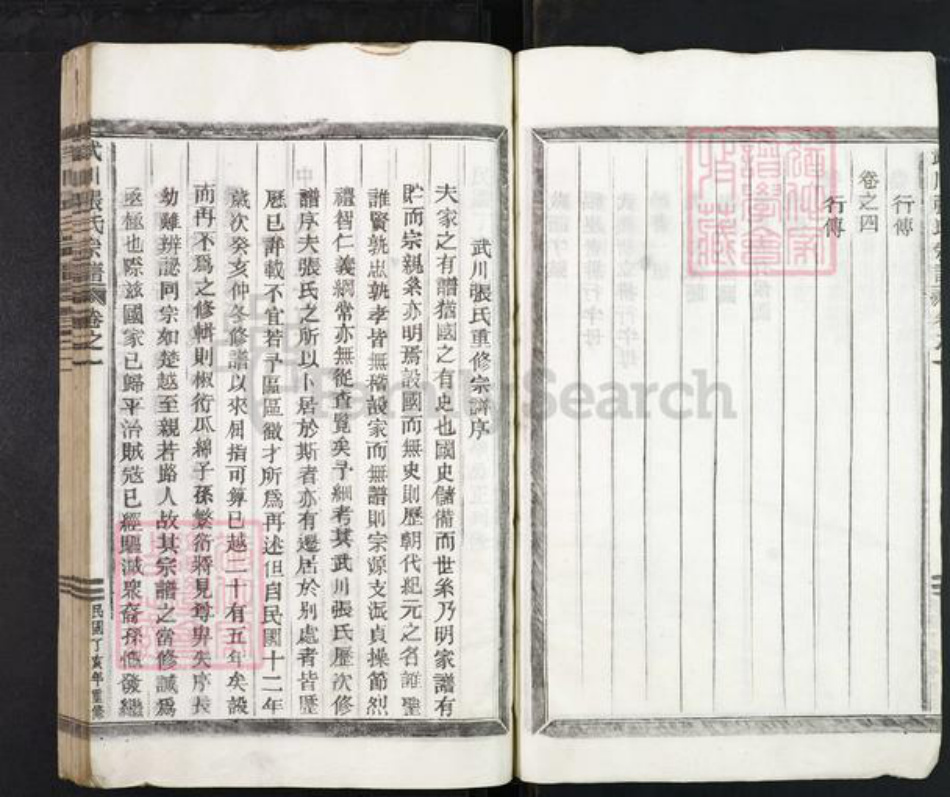 行傳
卷之四
行傳
武川張氏重修宗譜序
夫家之有譜猶國之有史也國史儲備而世系乃明家譜有
貯而宗親粲亦明焉設國而無史則歷朝代紀元之名誰聖
誰賢孰忠孰孝皆無稽設家而無譜則宗源支派貞操節烈
禮智仁義綱常亦無從查覽矣予細考其武川張氏歷次修
譜序夫張氏之所以卜居於斯者亦有遷居於別處者皆歷
歷已詳載不宜若予區區微才所為再述但自民國十二年
歲次癸亥仲冬修譜以來屈指可算已越二十有五年矣設
而再不為之修輯則椒衍瓜綿子孫繁衍將見尊卑失序長
幼難辨認同宗如楚越至親若路人故其宗譜之當修誠為
亟極也際茲國家已歸平治賊寇已經驅滅眾裔孫發繼
武川張氏宗譜
卷之一
民國丁亥年重修
FamilySearch